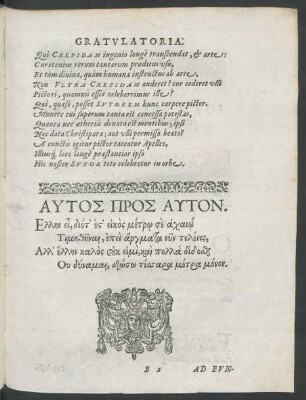 GRATVLATORIA.
Qui CREPIDAM ingenio longè transcendat, & arte:
Curetenim rerum tantarum præditus usu,
Et tàm divina, quàm humana instructus ab arte,
Non VLTRA CREPIDAM auderet? cur cederet ulli
Pictori, quamvis esset celeberrimus ille?
Qui, quasi, posset SVTOREM hunc carpere pictor.
Munere cui superum tanta est concessa potestas,
Quanta nec æthereis donata est mentibus; ipsi
Nec data Christiparæ; aut ulli permissa beato?
A cunctis igitur pictor taceatur Apelles,
Illius;, loco longè præstantior ipso
Hic noster SVTOR toto celebretur in orbe.
ΑΥΤΟΣ ΠΡΟΣ ΑΥΤΟΝ.
Ἕλλην εἶ, διότ' ἐς' εἰκὸς μέτρῳ σὲ ἀχαιῷ
ἐπεὶ νῦν τελέεις,
Ἀλλ' ἕλλην καλὸς Οὐκ εἰμὶ, καὶ πολλὰ
Οὐ δύναμαι, μέτρα μόνον.
B 2
AD EVN-